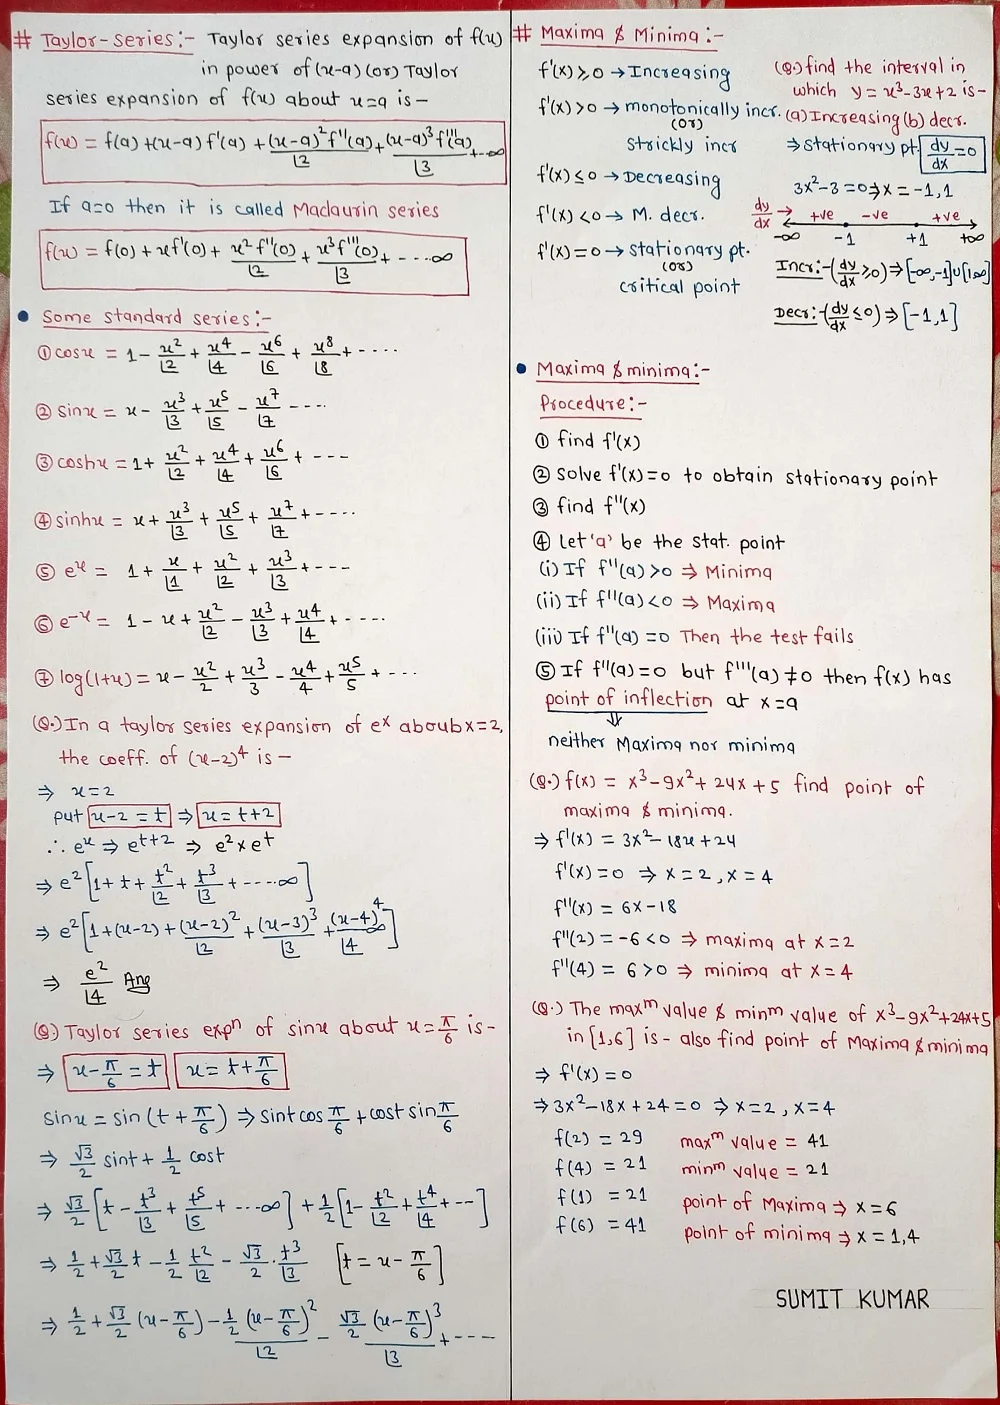 # Taylor-Series:- Taylor series expansion of f(x)
in power of (x-a) (or) Taylor
series expansion of f(x) about x=a is-
f(x) = f(a) +(x-a) f'(a) + (x-a)²f''(a)/⌊2 + (x-a)³f'''(a)/⌊3 + --∞
If a=0 then it is called Maclaurin series
f(x) = f(0) + xf'(0) + x²f''(0)/⌊2 + x³f'''(0)/⌊3 + - - - -∞
• Some standard series:-
① cosx = 1 - x²/⌊2 + x⁴/⌊4 - x⁶/⌊6 + x⁸/⌊8 + - - - -
② sinx = x - x³/⌊3 + x⁵/⌊5 - x⁷/⌊7 - - - -
③ coshx = 1 + x²/⌊2 + x⁴/⌊4 + x⁶/⌊6 + - - -
④ sinhx = x + x³/⌊3 + x⁵/⌊5 + x⁷/⌊7 + - - - -
⑤ eˣ = 1 + x/⌊1 + x²/⌊2 + x³/⌊3 + - - -
⑥ e⁻ˣ = 1 - x + x²/⌊2 - x³/⌊3 + x⁴/⌊4 + - - - -
⑦ log(1+x) = x - x²/2 + x³/3 - x⁴/4 + x⁵/5 + - - -
(Q.) In a taylor series expansion of eˣ about x=2,
the coeff. of (x-2)⁴ is -
⇒ x=2
put x-2 = t ⇒ x = t+2
∴ eˣ ⇒ eᵗ⁺² ⇒ e² x eᵗ
⇒ e²[1 + t + t²/⌊2 + t³/⌊3 + - - - -∞]
⇒ e²[1 + (x-2) + (x-2)²/⌊2 + (x-3)³/⌊3 + (x-4)⁴/⌊4 ∞]
⇒ e²/⌊4 Ans
(Q.) Taylor series expⁿ of sinx about x = π/6 is-
⇒ x - π/6 = t x = t + π/6
sinx = sin(t + π/6) ⇒ sint cos π/6 + cost sin π/6
⇒ √3/2 sint + 1/2 cost
⇒ √3/2 [t - t³/⌊3 + t⁵/⌊5 + - - -∞] + 1/2 [1 - t²/⌊2 + t⁴/⌊4 + - -]
⇒ 1/2 + √3/2 t - 1/2 t²/⌊2 - √3/2 . t³/⌊3 [t = x - π/6]
⇒ 1/2 + √3/2 (x - π/6) - 1/2 (x - π/6)²/⌊2 - √3/2 (x - π/6)³/⌊3 + - - - -
# Maxima & Minima:-
f'(x) ≥ 0 → Increasing
f'(x) > 0 → monotonically incr.
(or)
strickly incr
f'(x) ≤ 0 → Decreasing
f'(x) < 0 → M. decr.
f'(x) = 0 → stationary pt.
(or)
critical point
(Q.) find the interval in
which y = x³-3x+2 is-
(a) Increasing (b) decr.
⇒ stationary pt. dy/dx = 0
3x²-3 = 0 ⇒ x = -1, 1
dy/dx → +ve -ve +ve
-∞ -1 +1 +∞
Incr:- (dy/dx ≥ 0) ⇒ [-∞,-1]∪[1,∞]
Decr:- (dy/dx ≤ 0) ⇒ [-1,1]
• Maxima & minima:-
Procedure:-
① find f'(x)
② solve f'(x) = 0 to obtain stationary point
③ find f''(x)
④ Let 'a' be the stat. point
(i) If f''(a) > 0 ⇒ Minima
(ii) If f''(a) < 0 ⇒ Maxima
(iii) If f''(a) = 0 Then the test fails
⑤ If f''(a) = 0 but f'''(a) ≠ 0 then f(x) has
point of inflection at x = a
⇓
neither Maxima nor minima
(Q.) f(x) = x³-9x²+24x+5 find point of
maxima & minima.
⇒ f'(x) = 3x²-18x+24
f'(x) = 0 ⇒ x = 2, x = 4
f''(x) = 6x-18
f''(2) = -6 < 0 ⇒ maxima at x = 2
f''(4) = 6 > 0 ⇒ minima at x = 4
(Q.) The maxᵐ value & minᵐ value of x³-9x²+24x+5
in [1,6] is - also find point of Maxima & minima
⇒ f'(x) = 0
⇒ 3x²-18x+24 = 0 ⇒ x = 2, x = 4
f(2) = 29 maxᵐ value = 41
f(4) = 21 minᵐ value = 21
f(1) = 21 point of Maxima ⇒ x = 6
f(6) = 41 point of minima ⇒ x = 1,4
SUMIT KUMAR